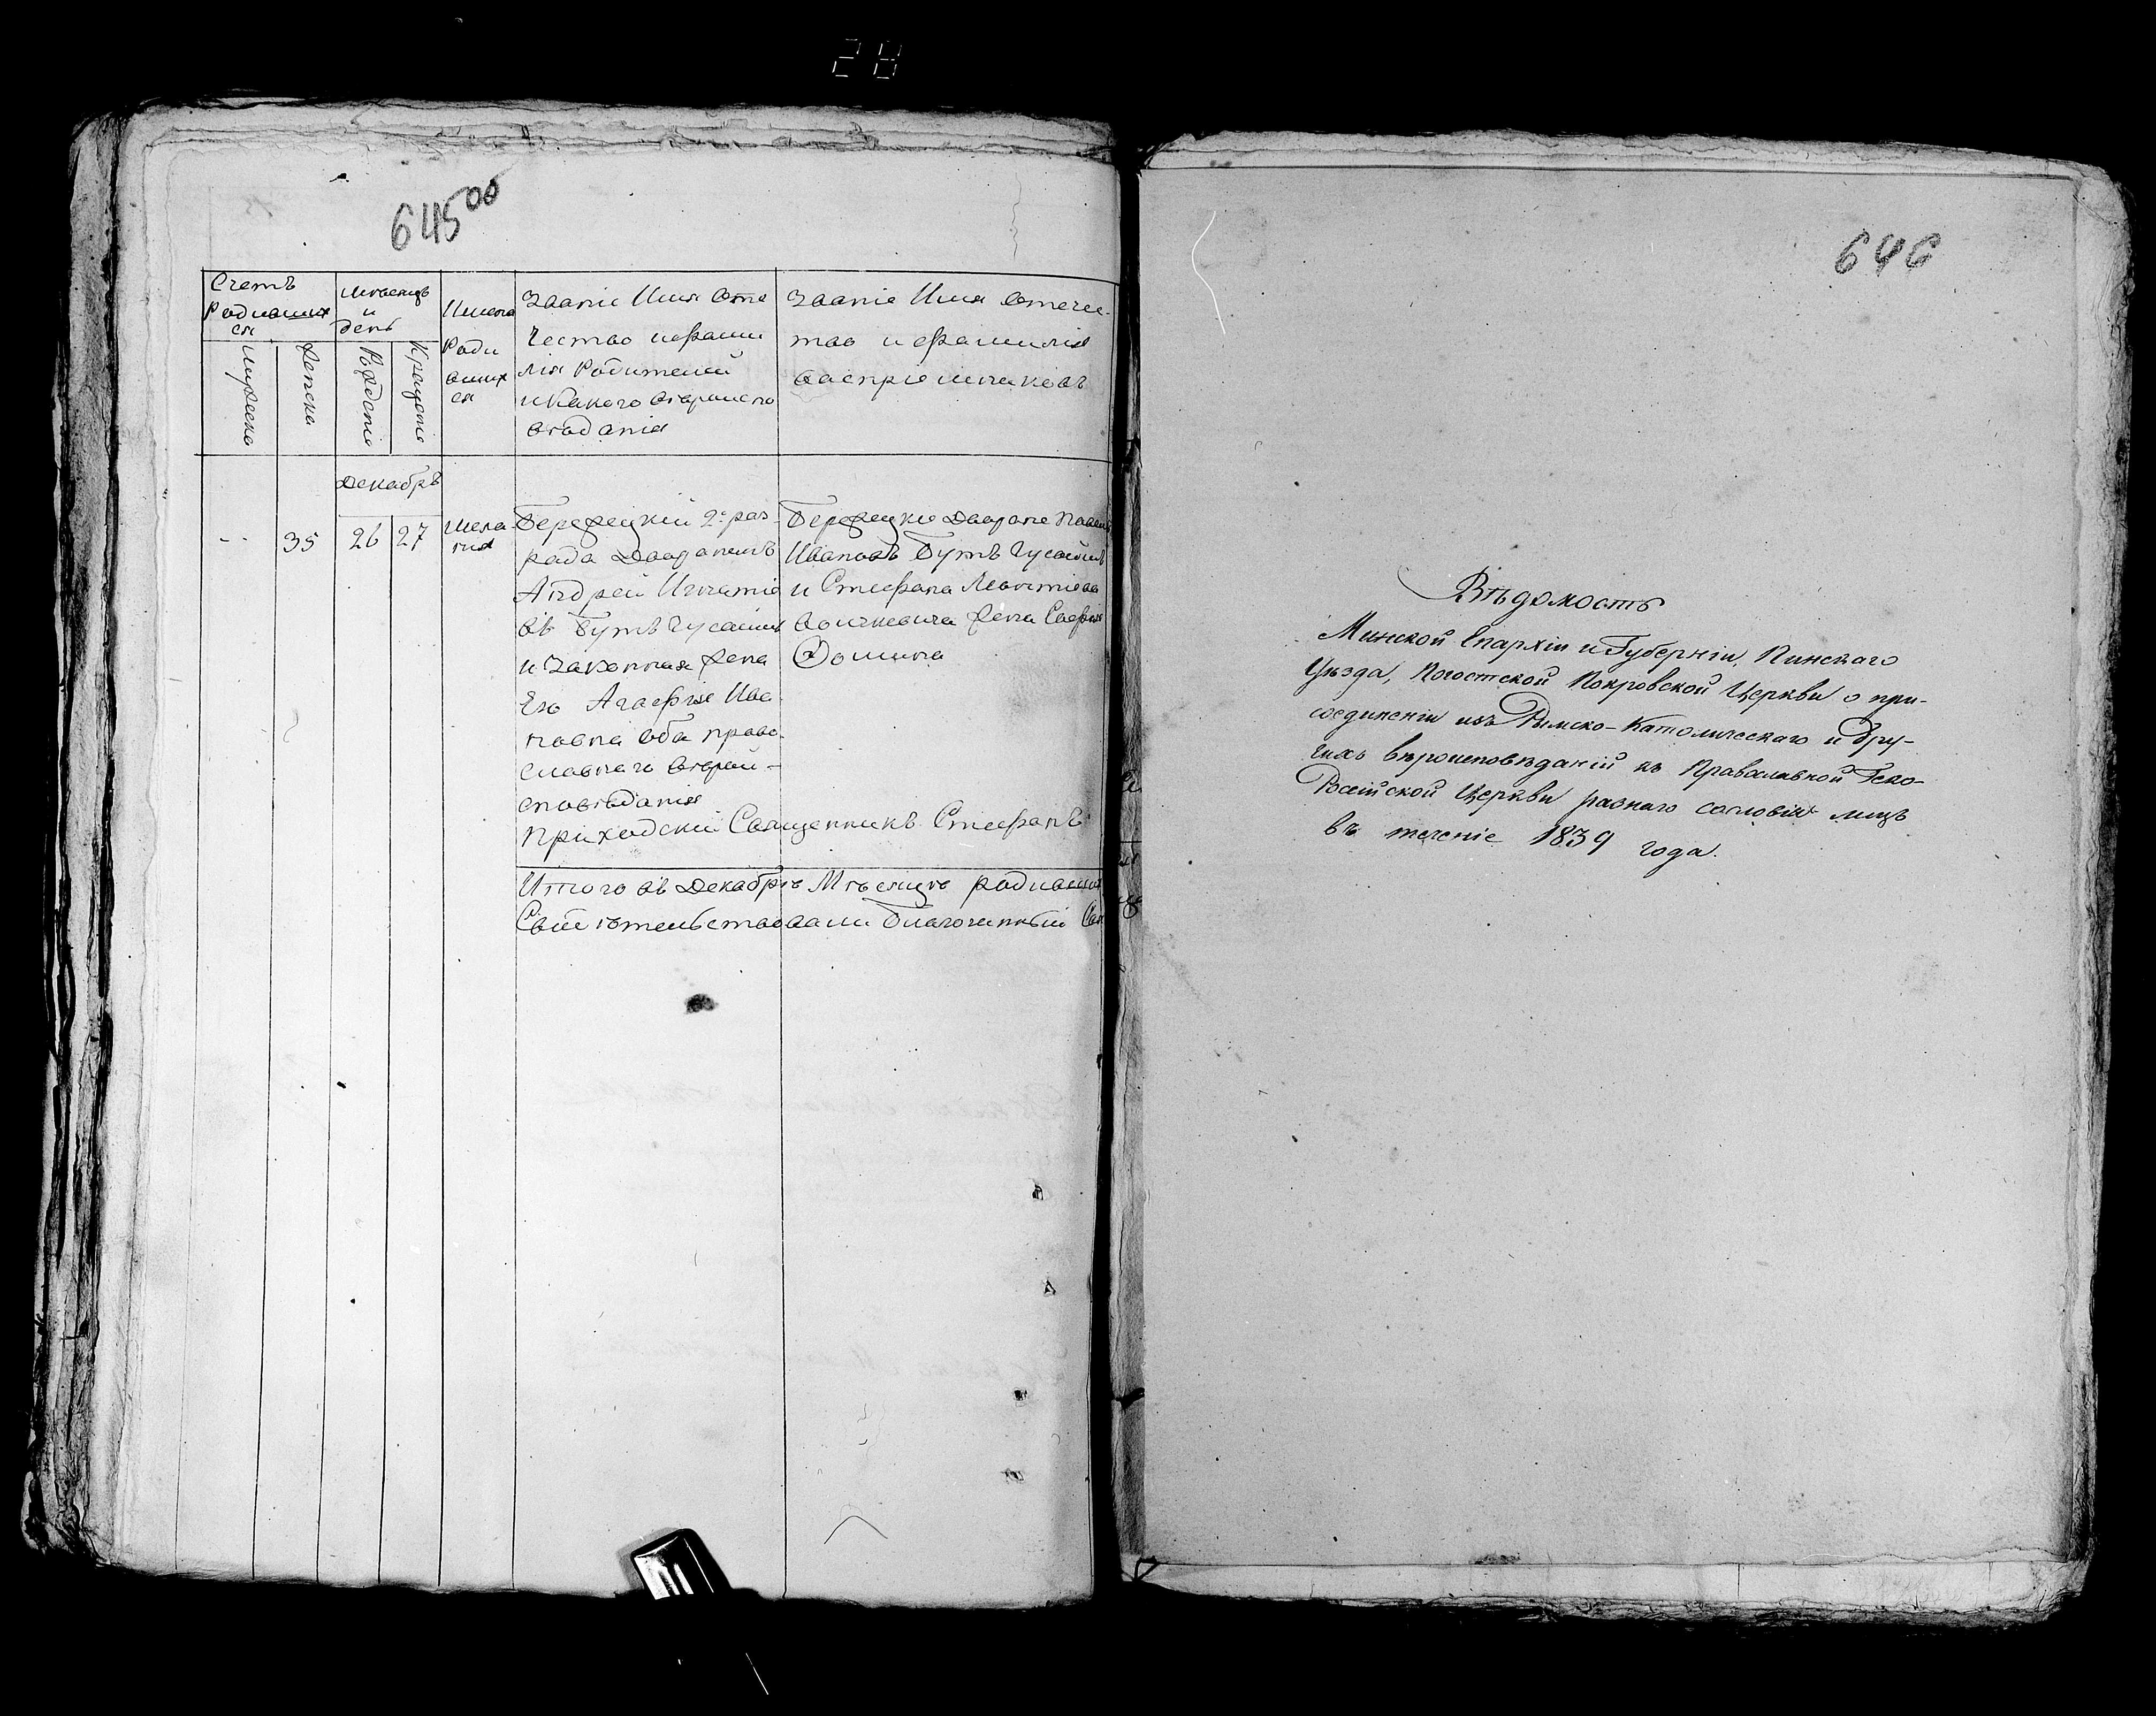 28
645 об
Счетъ
Родивших
ся
Мужеска
Женска
Мѣсецъ
и
день
Рожденіе
Крещеніе
Имена
Роди
вших
ся
Званіе Имя Оте
чество ифами
лія Родителей
иКакого вѣроиспо
вѣданія
Званіе Имя Отечес-
тво и фамилія
воспріемниковъ
Декабрь
-- 35 26 27
Мела-
нія
Бережецкій 2го раз-
рада Дворанинъ
Андрей Игнатіе
въ Бутъ Гусаимъ
и Законная Жена
Его Агафия Ива-
новна Оба право-
славнаго вѣрои-
сповѣданія
Бережецкіе Дворане Павелъ
Ивановъ Бутъ Гусаимъ
и Стефана Леонтіева
Жена София
Фомина
Приходскій Священникъ Стефанъ
Итого въ Декабрѣ Мѣсяцѣ родивших
Свидѣтельствовали Благочинный
646
Вѣдомость
Минской Епархіи и Губерніи, Пинскаго
Уѣзда, Погостской Покровской Церкви о при-
соединеніи изъ Римско-Католическаго и дру-
гихъ вѣроисповѣданій къ Православной Геко-
Россійской Церкви разнаго сословія лицъ
въ теченіе 1839 года.